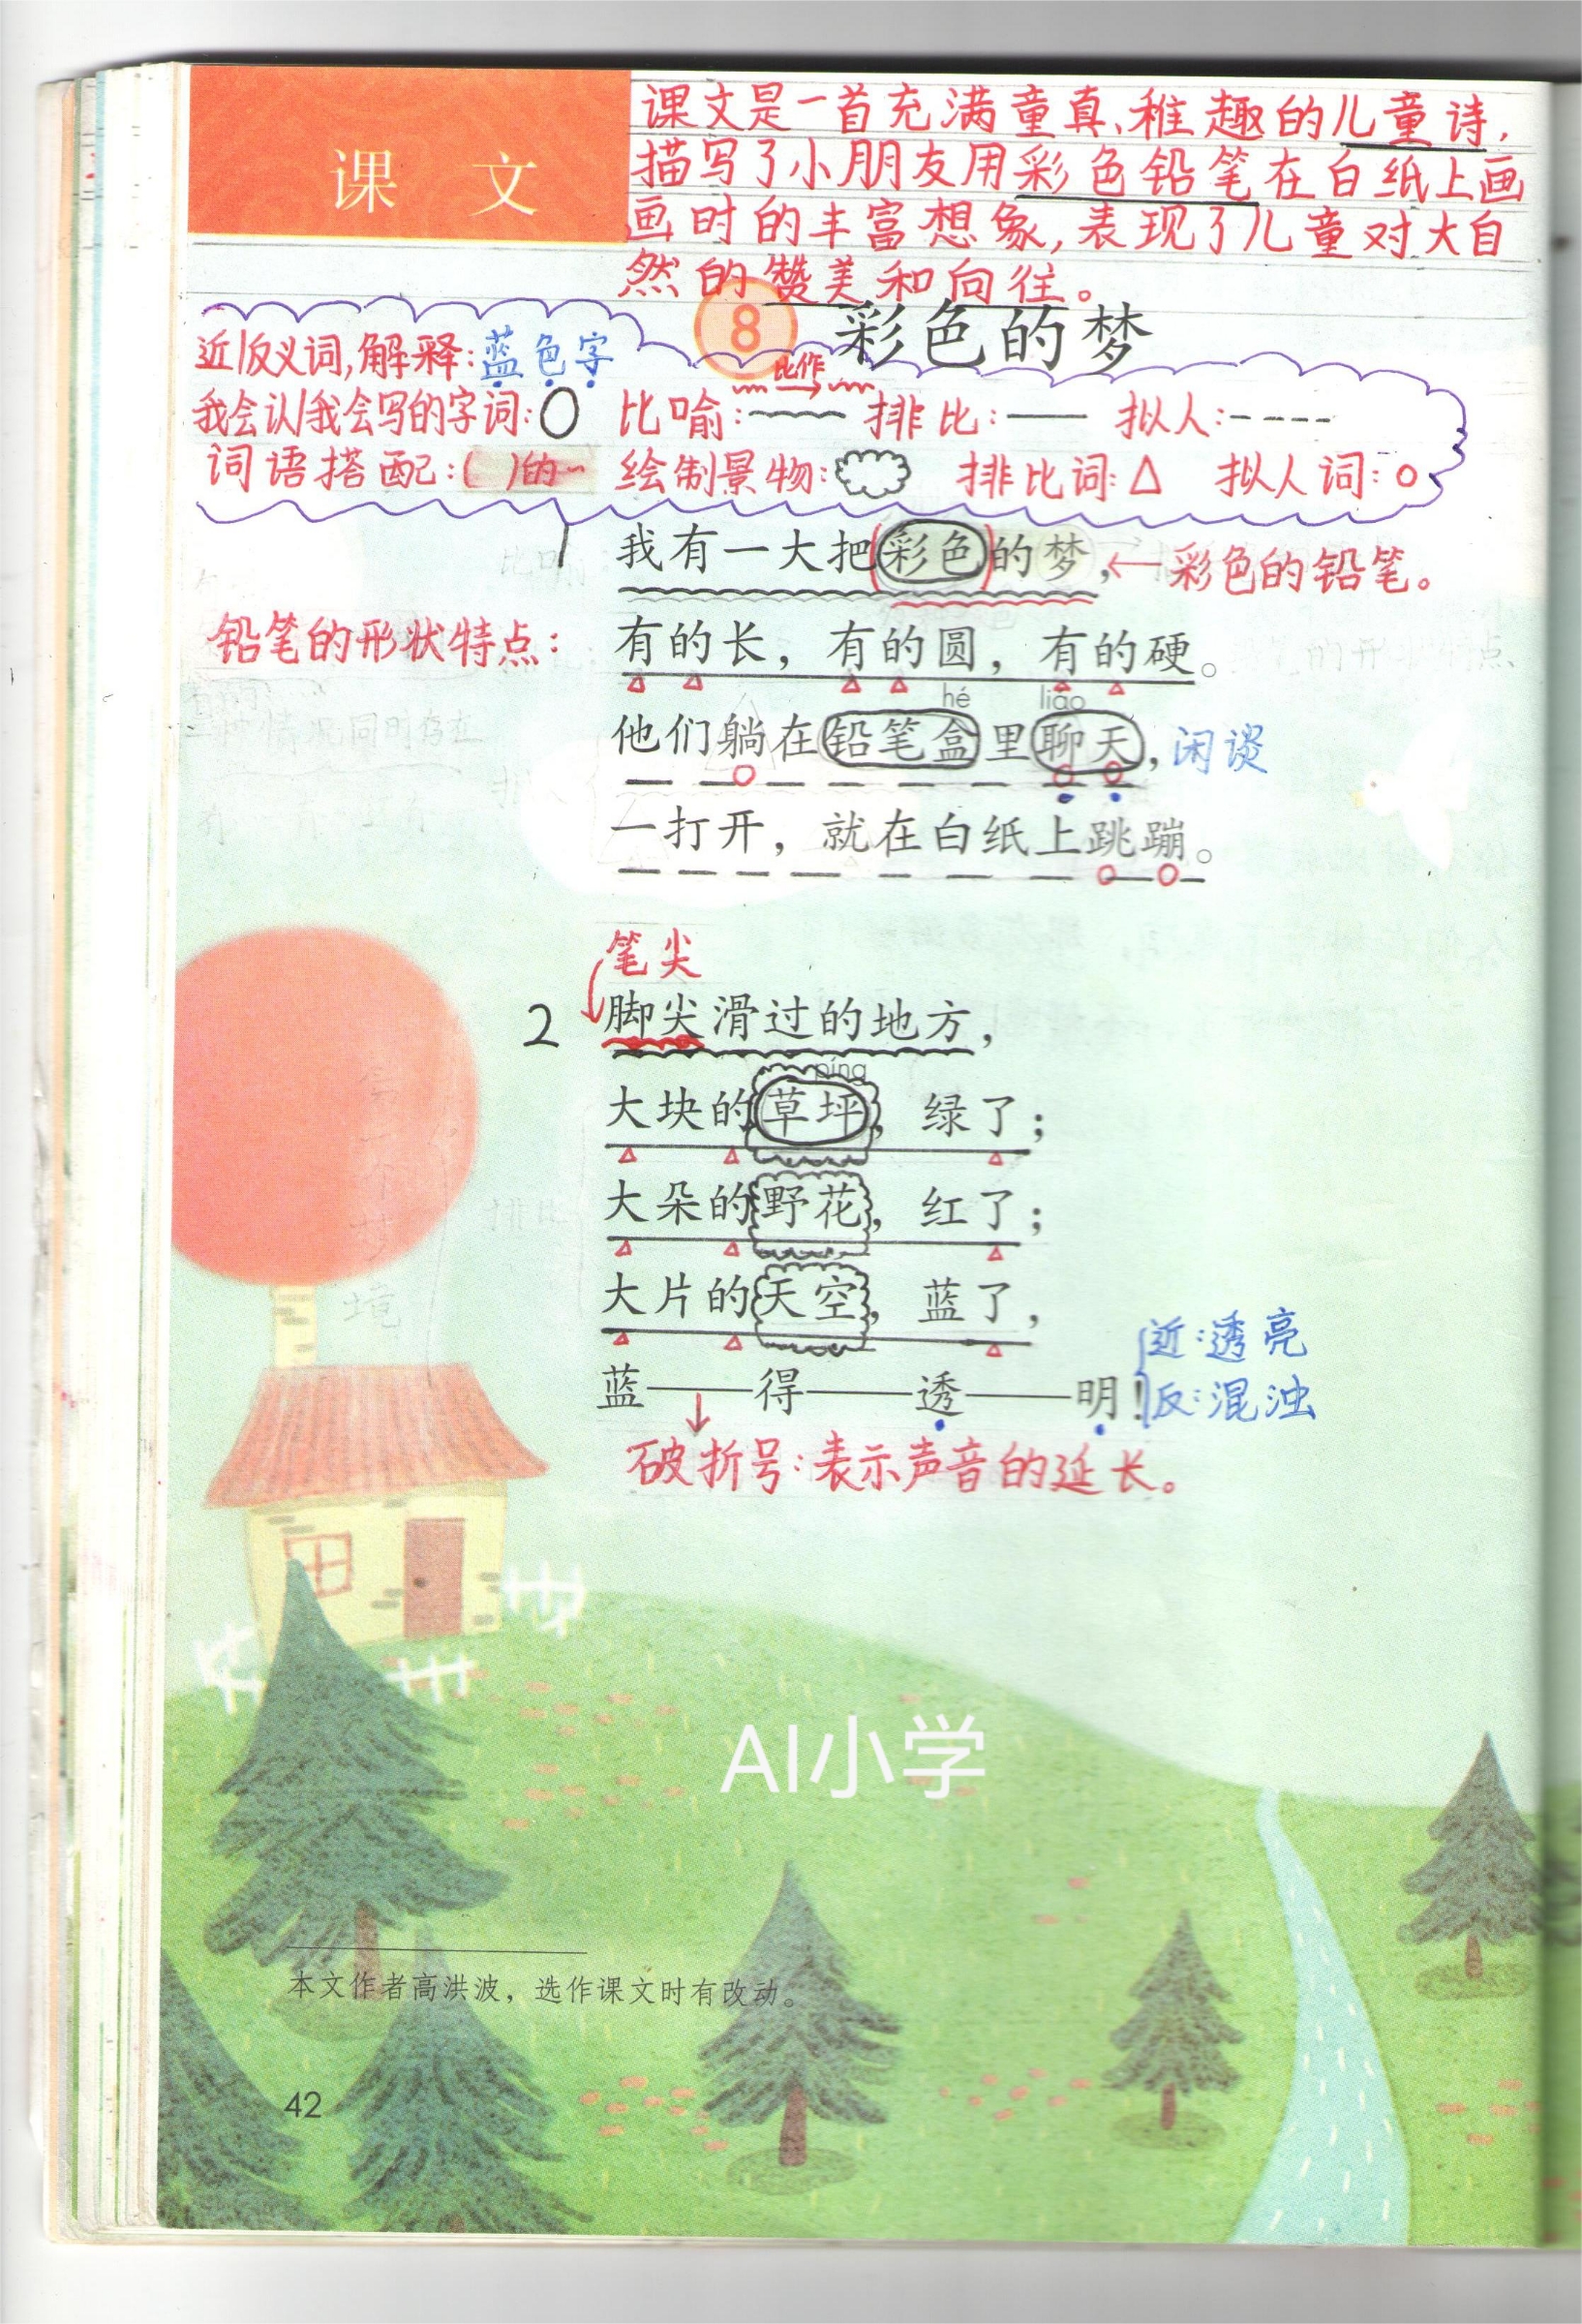 课 文
课文是一首充满童真、稚趣的儿童诗,
描写了小朋友用彩色铅笔在白纸上画
画时的丰富想象,表现了儿童对大自
然的赞美和向往。
8 彩色的梦
近/反义词,解释:蓝色字
比作
我会认/我会写的字词: 比喻: 排比: 拟人:
词语搭配:( )的~ 绘制景物: 排比词:△ 拟人词:○
1 我有一大把彩色的梦,←彩色的铅笔。
铅笔的形状特点: 有的长,有的圆,有的硬。
hé liáo
他们躺在铅笔盒里聊天,闲谈
一打开,就在白纸上跳蹦。
笔尖
2 脚尖滑过的地方,
píng
大块的草坪,绿了;
大朵的野花,红了;
大片的天空,蓝了,
近:透亮
蓝——得——透——明!
反:混浊
破折号:表示声音的延长。
AI小学
本文作者高洪波,选作课文时有改动。
42